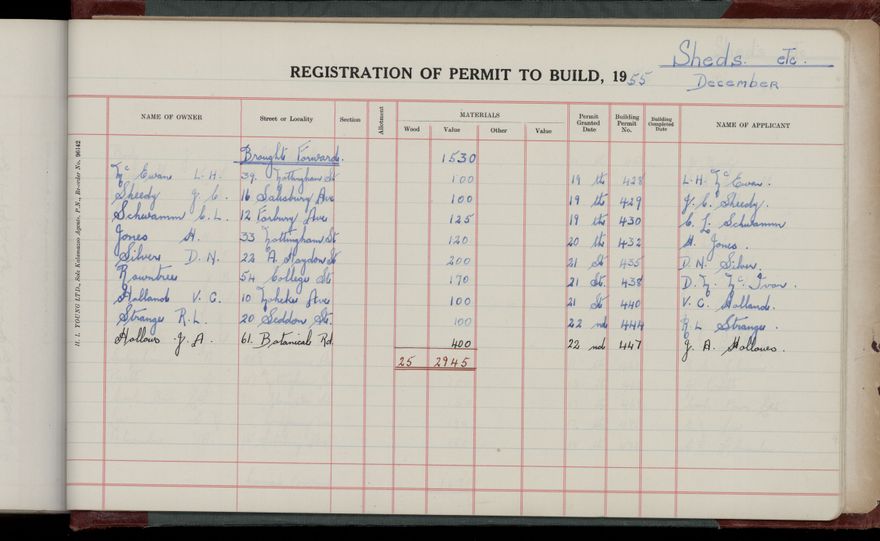 Sheds. etc.
REGISTRATION OF PERMIT TO BUILD, 1955 December
NAME OF OWNER Street or Locality Section Allotment MATERIALS Permit Granted Date Building Permit No. Building Completed Date NAME OF APPLICANT
Wood Value Other Value
Broughts Forward. 1530
Mc Ewan L.H. 39. Nottingham St 100 19 th 428 L.H. Mc Ewan.
Sheedy J. C. 16 Salisbury Ave 100 19 th 429 J. C. Sheedy.
Schwamm C.L. 12 Torbury Ave 125 19 th 430 C. L. Schwamm
Jones H. 33 Nottingham St 120 20 th 432 H. Jones.
Silver D.N. 22 A. Haydon St 200 21 St 435 D.N. Silver.
Rowntree 54 College St 170 21 St. 438 D. Mc Ivor.
Holland V.C. 10 Moheke Ave 100 21 St 440 V.C. Holland.
Stranger R.L. 20 Seddon St. 100 22 nd 444 R L Stranger.
Hallows J. A. 61. Botanical Rd 400 22 nd 447 J. A. Hallows.
25 2945
H. L. YOUNG LTD., Sole Kalamazoo Agents, P.N., Re-order No. 96142